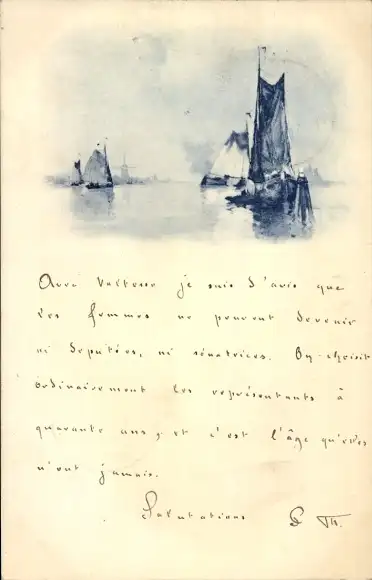 Avec Valtesse je suis d'avis que
les femmes ne peuvent devenir
ni députées, ni sénatrices. On choisit
ordinairement les représentants à
quarante ans, et c'est l'âge qu'elles
n'ont jamais.
Salutations G Th.